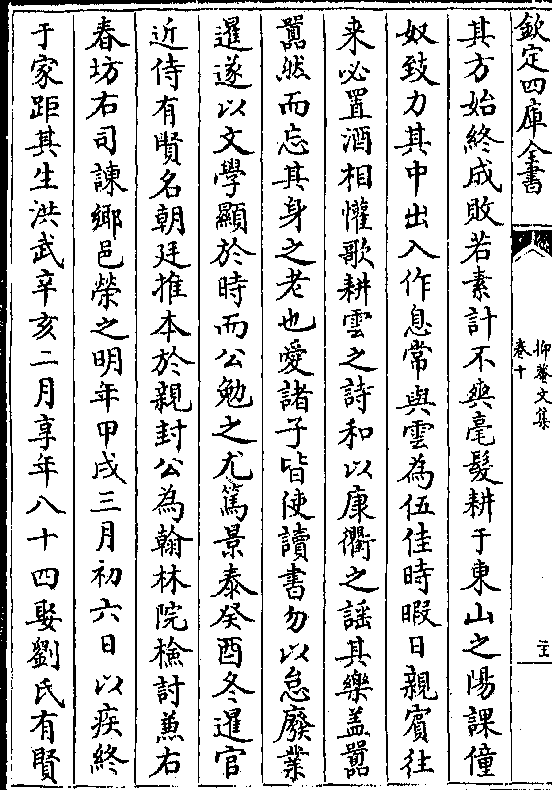 欽定四庫全書
抑菴文集
卷十
其方始終成敗若素計不爽毫髮耕于東山之陽課僮
奴致力其中出入作息常與雲為伍佳時暇日親賓往
來必置酒相懽歌耕雲之詩和以康衢之謡其樂盖嚚
嚚然而忘其身之老也愛諸子皆使讀書勿以怠廢業
暹遂以文學顯於時而公勉之尤篤景泰癸酉冬暹官
近侍有賢名朝廷推本於親封公為翰林院檢討兼右
春坊右司諫鄉邑榮之明年甲戌三月初六日以疾終
于家距其生洪武辛亥二月享年八十四娶劉氏有賢